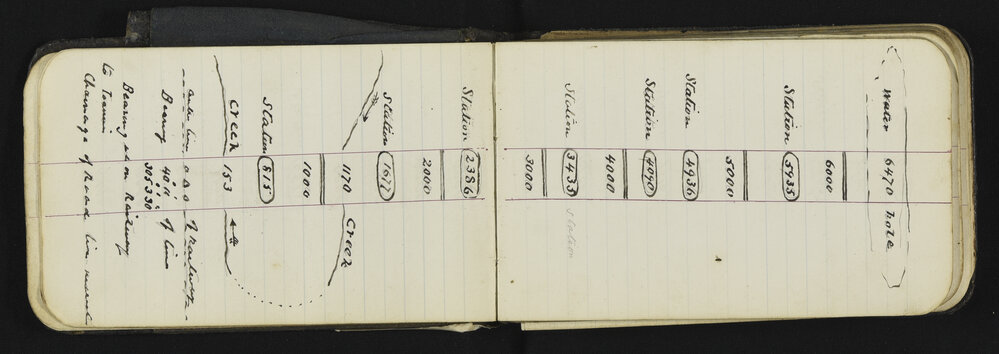 Water 6470 hole
6000
Station 5935
5000
Station 4936
Station 4090
4000
Station 3435 Station
3000
Station 2386
2000
Station 1677
1170 Creek
1000
Station 875
Creek 153
Centre line of railway
Bearing of line
305 33 30
Bearing on Railway
to
Chainage of Road line